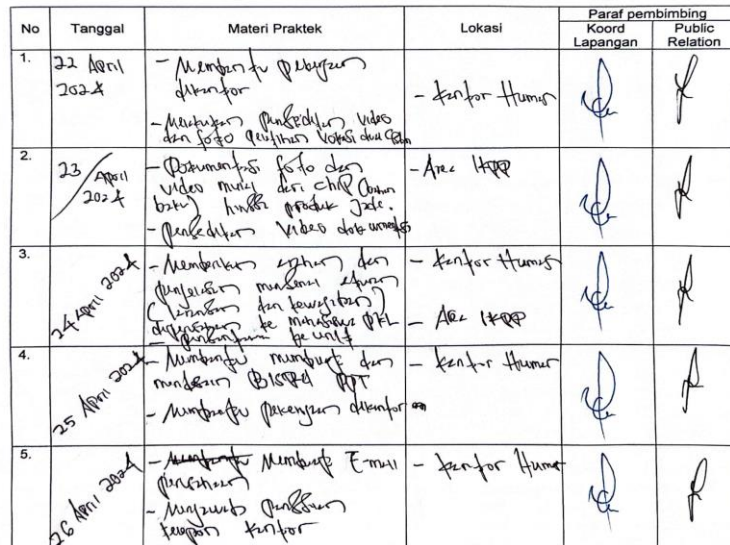 No Tanggal Materi Praktek Lokasi Paraf pembimbing
Koord Lapangan Public Relation
1. 22 April 2024
- Membantu pekerjaan
dikantor
- Melakukan pengeditan video
dan foto pelatihan Vokasi dan
- Kantor Humas
2. 23 April 2024
- Dokumentasi foto dan
video mulai dari chip (bahan
baku) hingga produk jadi.
- pengeditan video dokumentasi
- Area IKPP
3. 24 April 2024
- Memberikan arahan dan
penjelasan mengenai aturan
(larangan dan kewajiban)
diperusahaan ke mahasiswa PKL
- ke unit
- Kantor Humas
- Area IKPP
4. 25 April 2024
- Membantu membuat dan
mendesain PPT
- Membantu pekerjaan dikantor
- Kantor Humas
5. 26 April 2024
- Membuat E-mail
perusahaan
- Menjawab panggilan
telepon kantor
- Kantor Humas